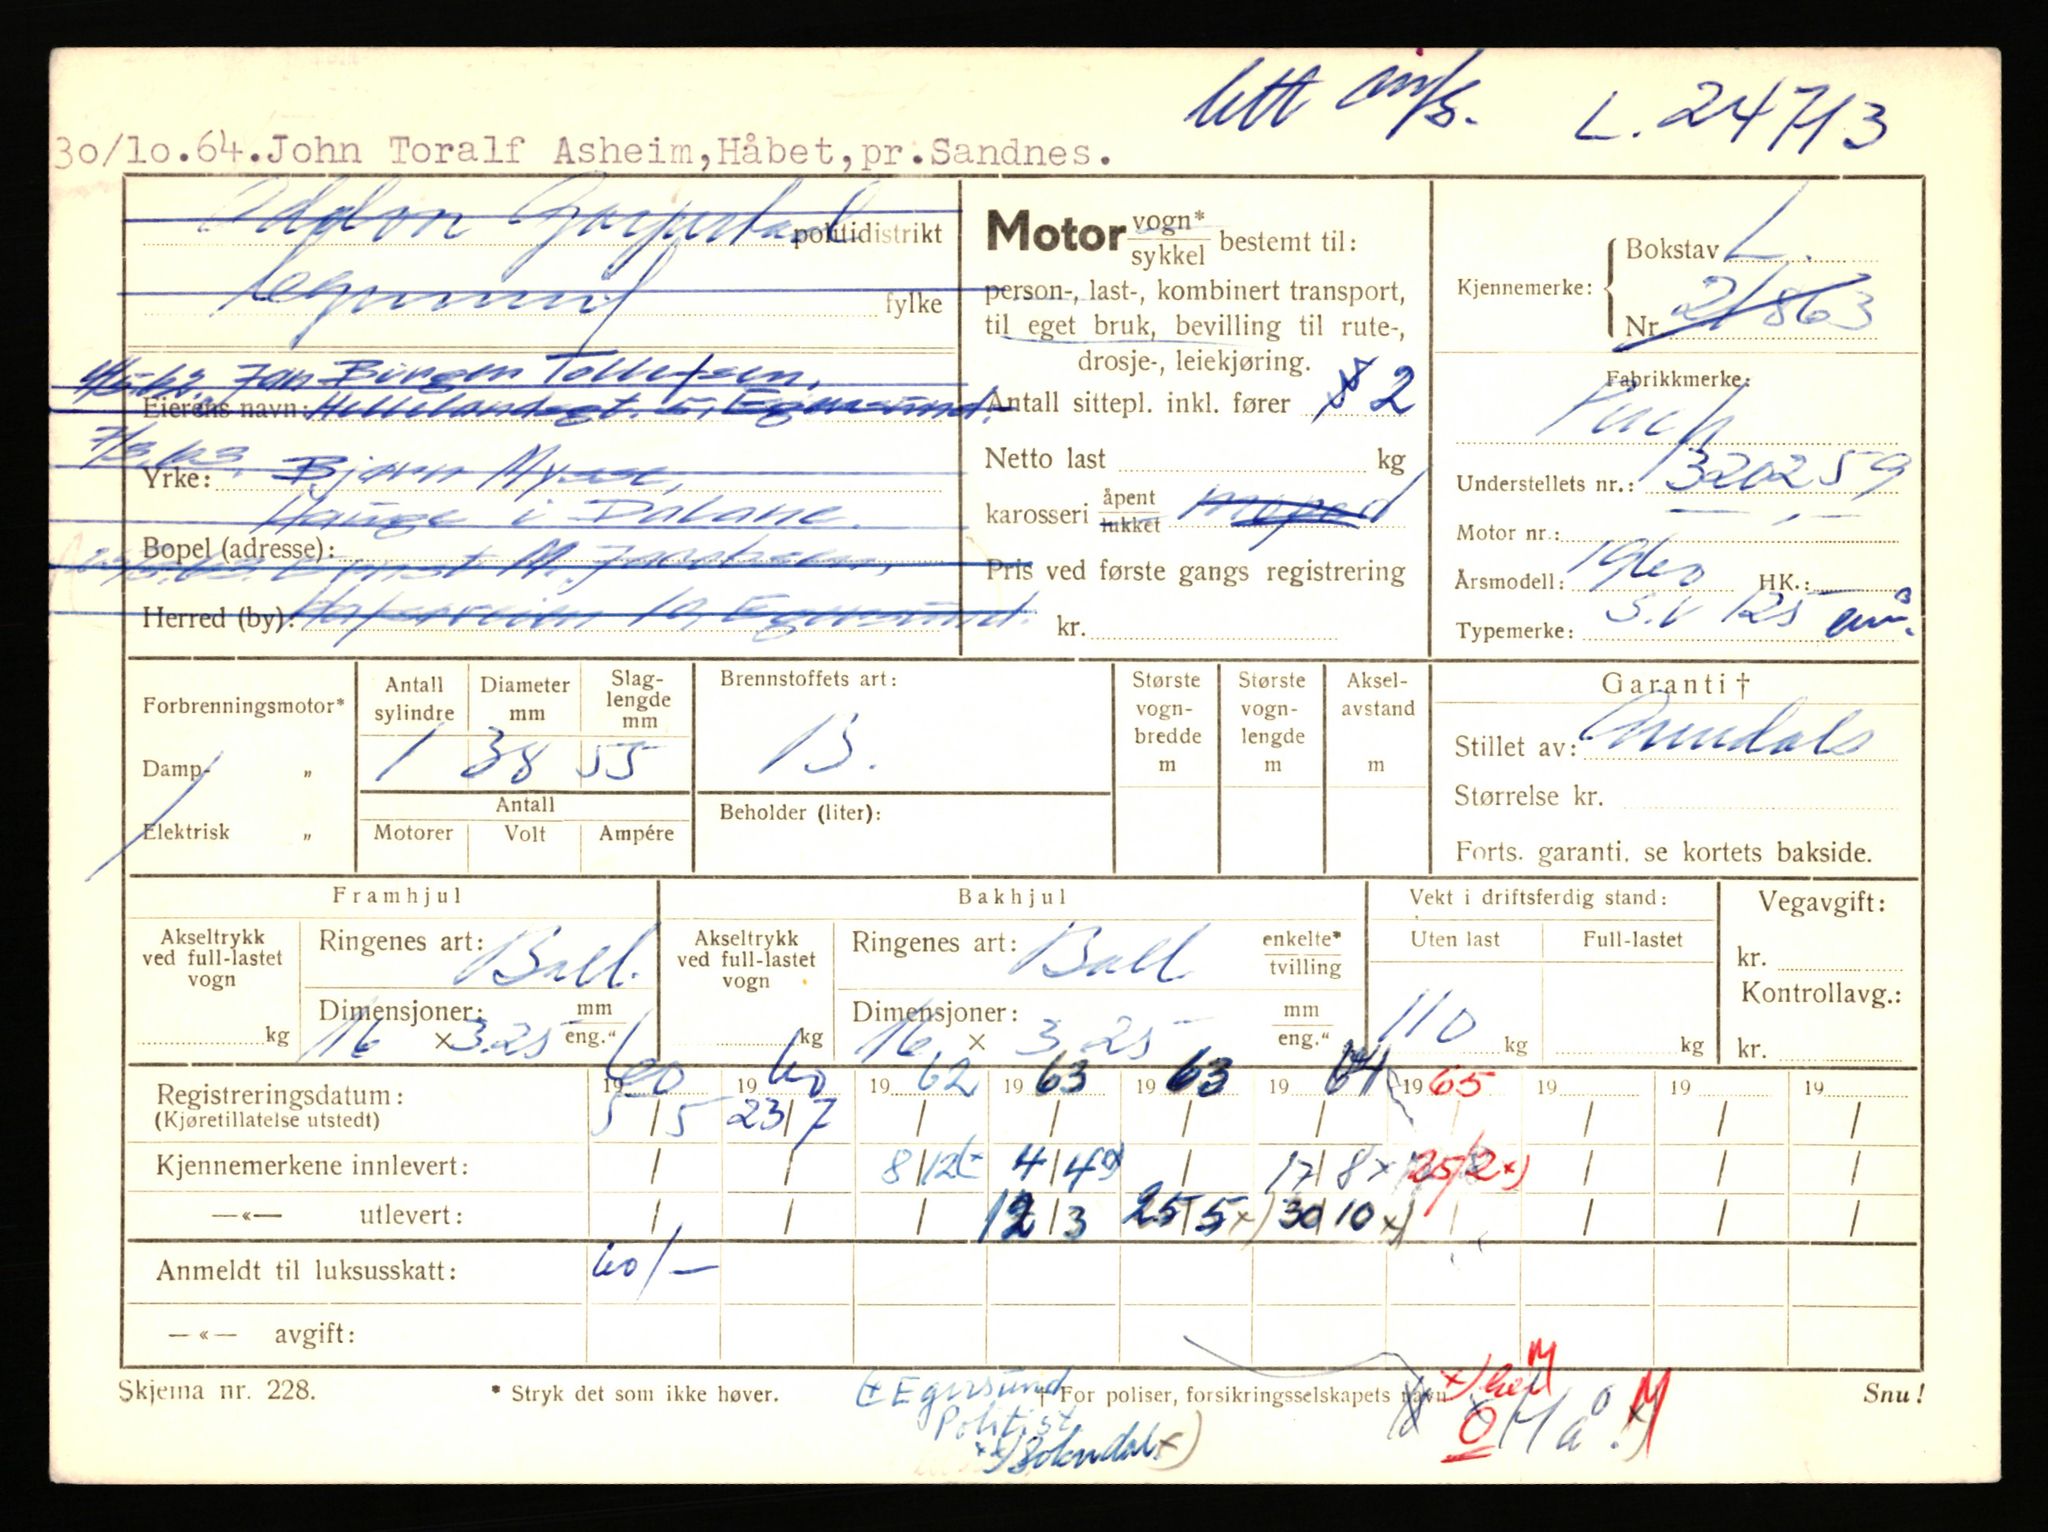 lett m/s. L. 24713
30/10.64.John Toralf Asheim,Håbet,pr.Sandnes.
politidistrikt
fylke
Jan Birger Tollefsen,
Eierens navn: Hellelandsgt. 5, Egersund.
7/3.63.
Yrke: Bjørn
Hauge i Dalane.
Bopel (adresse):
Ernst M. Jacobsen,
Herred (by): 10, Egersund.
Motor vogn* / sykkel bestemt til:
person-, last-, kombinert transport,
til eget bruk, bevilling til rute-,
drosje-, leiekjøring.
Antall sittepl. inkl. fører 2
Netto last kg
karosseri åpent / lukket moped
Pris ved første gangs registrering
kr.
Kjennemerke: Bokstav L.
Nr. 21863
Fabrikkmerke:
Puch
Understellets nr.: 320259
Motor nr.:
Årsmodell: 1960 HK.:
Typemerke: S.V 125
Forbrenningsmotor*
Damp- „
Elektrisk „
Antall sylindre Diameter mm Slaglengde mm
1 38 55
Antall
Motorer Volt Ampére
Brennstoffets art:
B.
Beholder (liter):
Største vognbredde m
Største vognlengde m
Akselavstand m
Garanti †
Stillet av:
Størrelse kr.
Forts. garanti. se kortets bakside.
Framhjul
Akseltrykk ved full-lastet vogn kg
Ringenes art: Ball.
Dimensjoner: mm / eng."
16 x 3.25
Bakhjul
Akseltrykk ved full-lastet vogn kg
Ringenes art: Ball enkelte* / tvilling
Dimensjoner: mm / eng."
16 x 3.25
Vekt i driftsferdig stand:
Uten last Full-lastet
110 kg kg
Vegavgift:
kr.
Kontrollavg.:
kr.
Registreringsdatum: 1960 1960 1962 1963 1963 1964 1965 19 19 19
(Kjøretillatelse utstedt) 5/5 23/7 / / / / / / / /
Kjennemerkene innlevert: / / 8/12 4/4 / 17/8 x 25/2 x) / / /
—«— utlevert: / / / 12/3 25/5 x) 30/10 x) / / / /
Anmeldt til luksusskatt: 60/-
—«— avgift:
Skjema nr. 228. * Stryk det som ikke høver. † For poliser, forsikringsselskapets navn Snu!
Egersund
Politist.
Sokndal x)
Hå